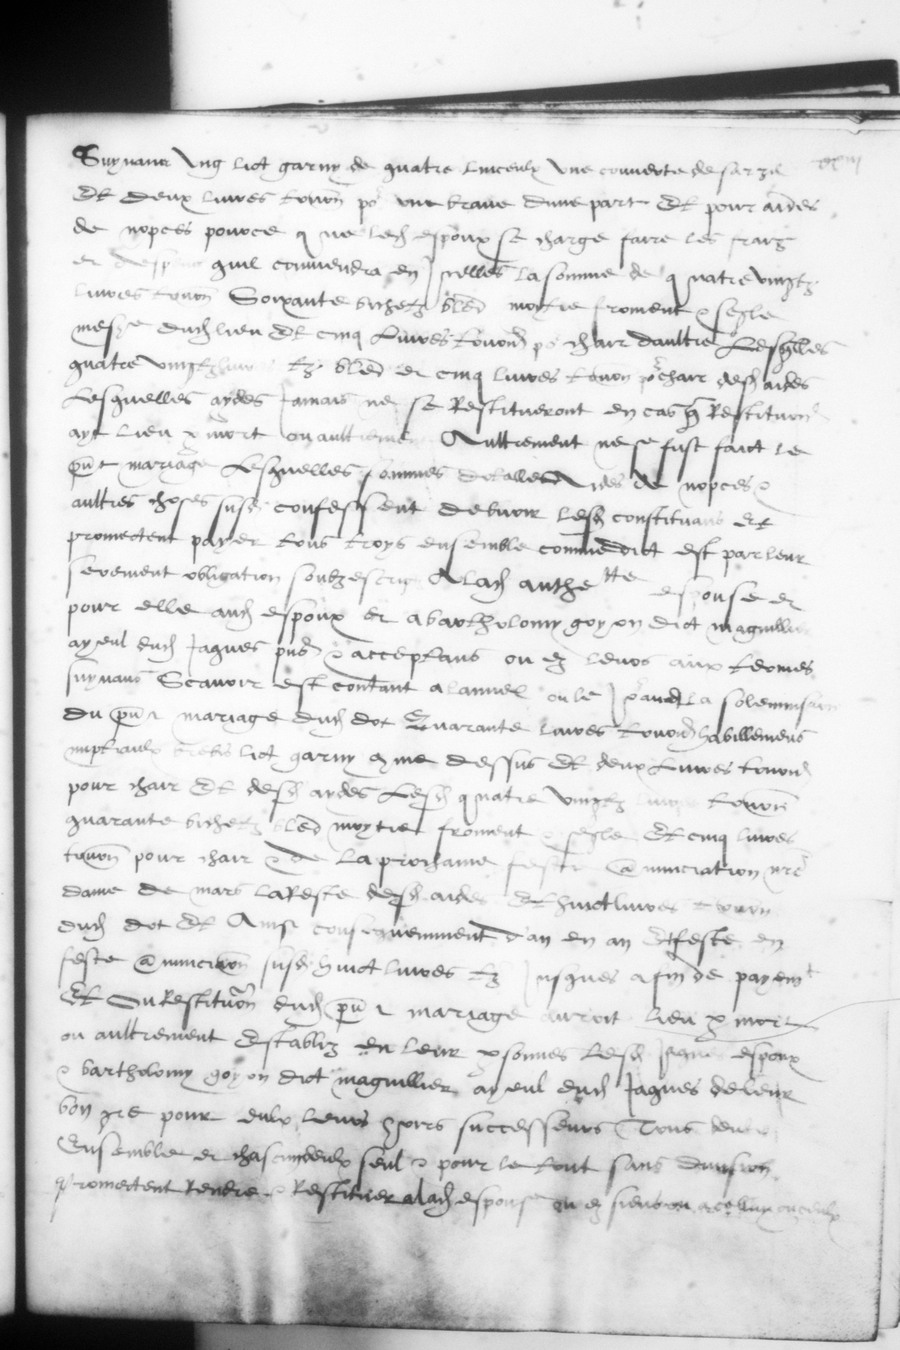 Suyvant ung lict garny de quatre linceulx une couverte de sarzil
Et deux livres tourn po^r une trave dune part Et pour aides
de nopces pource que led espoux se charge faire les fraiz
et despens quil conviendra en Icelles la somme de quatre vingtz
livres tourn Soixante bichetz bled moytie froment & segle
mes^re dud lieu Et cinq livres tourn po^r chair daultre Lesquelles
quatre vingtz livres tz bled et cinq livres tourn po^r chair desd aides
Lesquelles aydes Jamais ne se Restitueront en cas q Restitution
ayt lieu p mort ou aultrement Aultrement ne se fust faict le
pnt mariage Lesquelles sommes de nopces &
aultres choses susd confessent debvoir lesd constituans Et
promectent payer tous troys ensemble comme dict est par leur
serement obligation soubzescrip A lad anthe^tte espouse et
pour elle aud espoux et a bartholomy goyon dict maguillier
ayeul dud Jaques pns & acceptans ou es leurs aux termes
suyvans Scavoir est contant a lannel ou le Jo^r avant la solemnisation
du pnt mariage dud dot Quarante livres tourn habillemens
nuptiaulx lict garny comme dessus Et deux livres tourn
pour chair Et desd aydes Lesd quatre vingtz livres tourn
quarante bichetz bled moytie froment & segle Et cinq livres
tourn pour chair & de la prochaine feste Annunciation nre
dame de mars la Reste desd aides Et huict livres tourn
dud dot Et Ainsi consequemment dan en an Et feste en
feste Annunciation susd huict livres tz Jusques a fin de payem^t
Et Ou Restitution dud pnt mariage auroit lieu p mort
ou aultrement Establiz en leur psonnes lesd Jaques espoux
& bartholomy goyon dict maguillier ayeul dud Jaques de leur
bon gre pour eulx leurs hoirs successeurs Tous deux
Ensemble et chascun deulx seul & pour le tout sans division
promectent Rendre & Restituer a lad espouse ou es siens